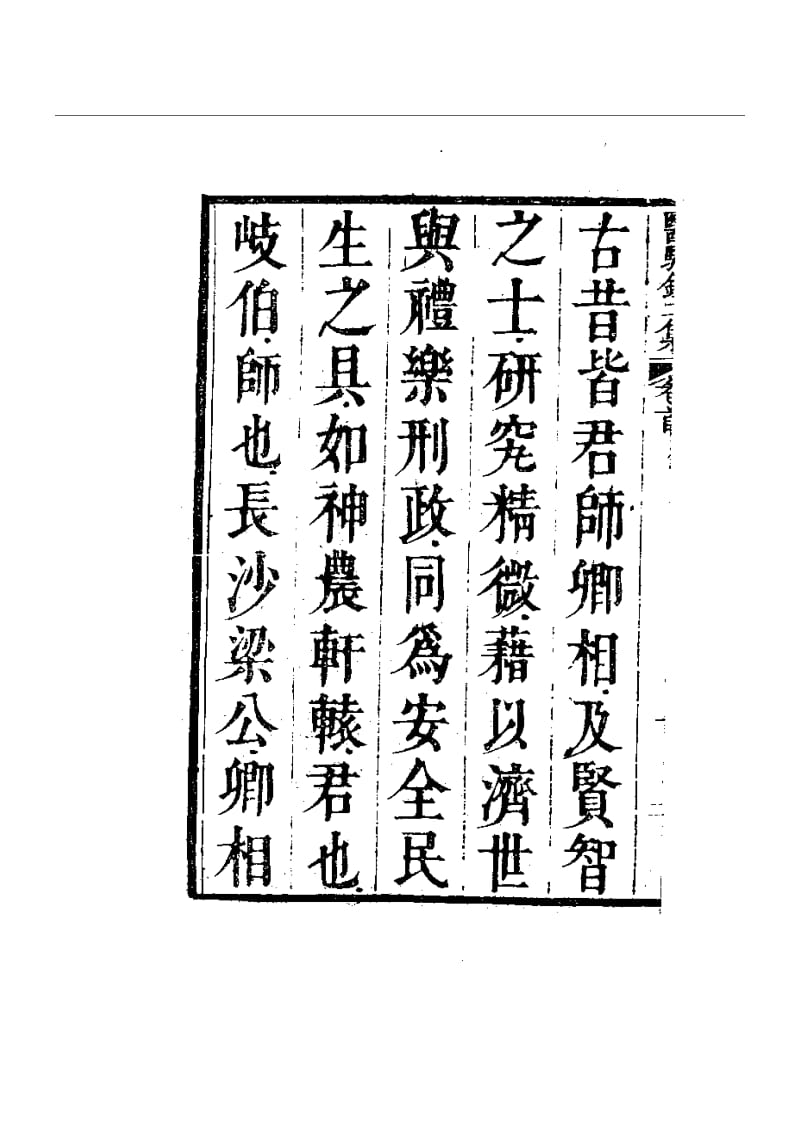 醫驗錄二集 卷首
古昔皆君師卿相及賢智
之士研究精微藉以濟世
與禮樂刑政同爲安全民
生之具如神農軒轅君也
岐伯師也長沙梁公卿相